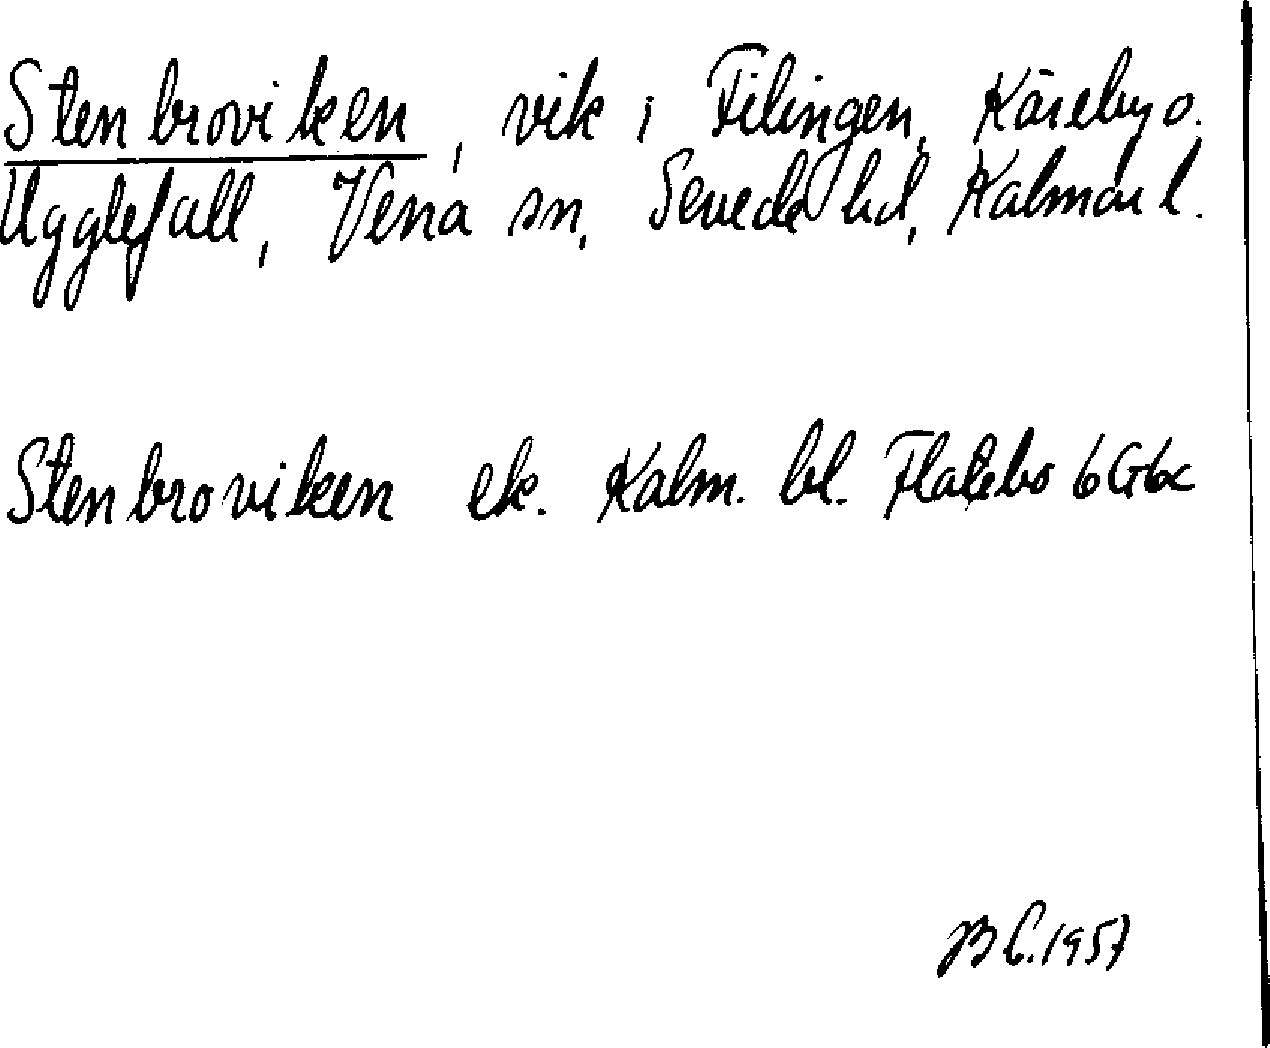 Stenbroviken, vik i Filingen, Käreby o.
Ugglefall, Vena sn, Sevede hd, Kalmar l.
Stenbroviken ek. Kalm. bl. Flatebo 6G6c
B C. 1957